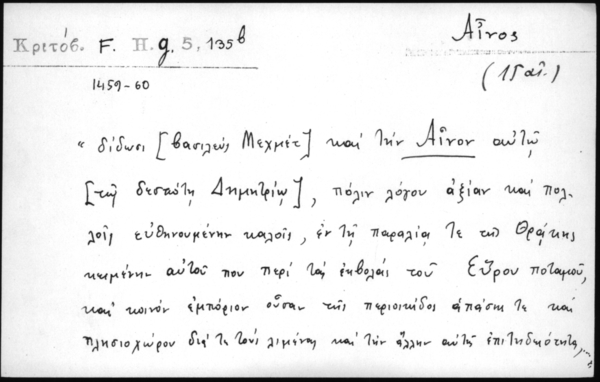 Αἶνος
Κριτόβ. F. H. g. 5, 135b
(15 αἰ.)
1459-60
“ δίδωσι [βασιλεύς Μεχμέτ] καί τήν Αἶνον αὐτῷ
[τῷ δεσπότῃ Δημητρίῳ], πόλιν λόγου ἀξίαν καί πολ-
λοῖς εὐθηνουμένην καλοῖς, ἐν τῇ παραλίᾳ τε τῆς Θρᾴκης
κειμένην αὐτοῦ που περί τάς ἐκβολάς τοῦ Εὔρου ποταμοῦ,
καί κοινόν ἐμπόριον οὖσαν τῆς περιοικίδος ἁπάσης τε καί
πλησιοχώρου διά τε τούς λιμένας καί τήν ἄλλην αὐτῆς ἐπιτηδειότητα,...